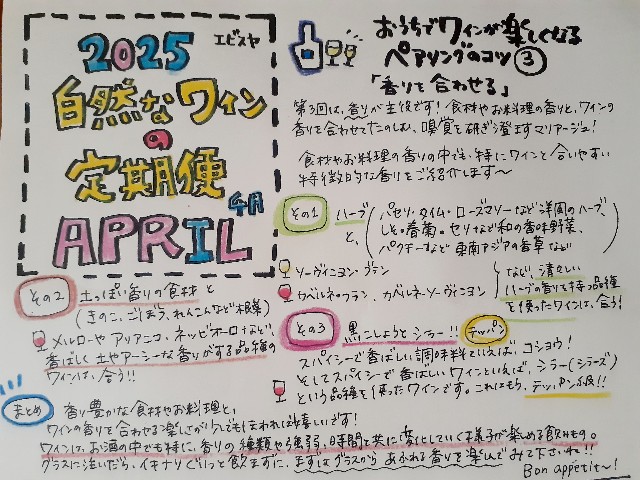 2025
エビスヤ
自然なワイン
の
定期便
APRIL
4月
おうちでワインが楽しくなる
ペアリングのコツ③
「香りを合わせる」
第3回は、香りが主役です!食材やお料理の香りと、ワインの
香りを合わせてたのしむ、嗅覚を研ぎ澄ますマリアージュ!
食材やお料理の香りの中でも、特にワインと合いやすい
特徴的な香りをご紹介します〜
その1
ハーブ
と、
パセリ・タイム・ローズマリーなど洋風のハーブ、
しそ。春菊。セリなど和の香味野菜、
パクチーなど東南アジアの香草など
ソーヴィニヨン・ブラン
カベルネフラン、カベルネソーヴィニヨン
など、清々しい
ハーブの香りを持つ品種
を使ったワインは、合う!
その2
土っぽい香りの食材と
(きのこ、ごぼう、れんこんなど根菜)
メルローや アリアニコ、ネッビオーロなど、
香ばしく土やアーシーな香りがする品種の
ワインは、合う!!
その3
黒こしょうとシラー!!
テッパン
スパイシーで香ばしい調味料といえば、コショウ!
そしてスパイシーで香ばしいワインといえば、シラー(シラーズ)
という品種を使ったワインです。これはもう、テッパン級!!
まとめ
香り豊かな食材やお料理と、
ワインの香りを合わせる楽しさが少しでも伝われば嬉しいです!
ワインは、お酒の中でも特に、香りの種類や強弱、時間と共に変化していく様子が楽しめる飲みもの。
グラスに注いだら、イキナリぐいっと飲まずに、まずはグラスからあふれる香りを楽しんでみて下さいね!!
Bon appétit〜!